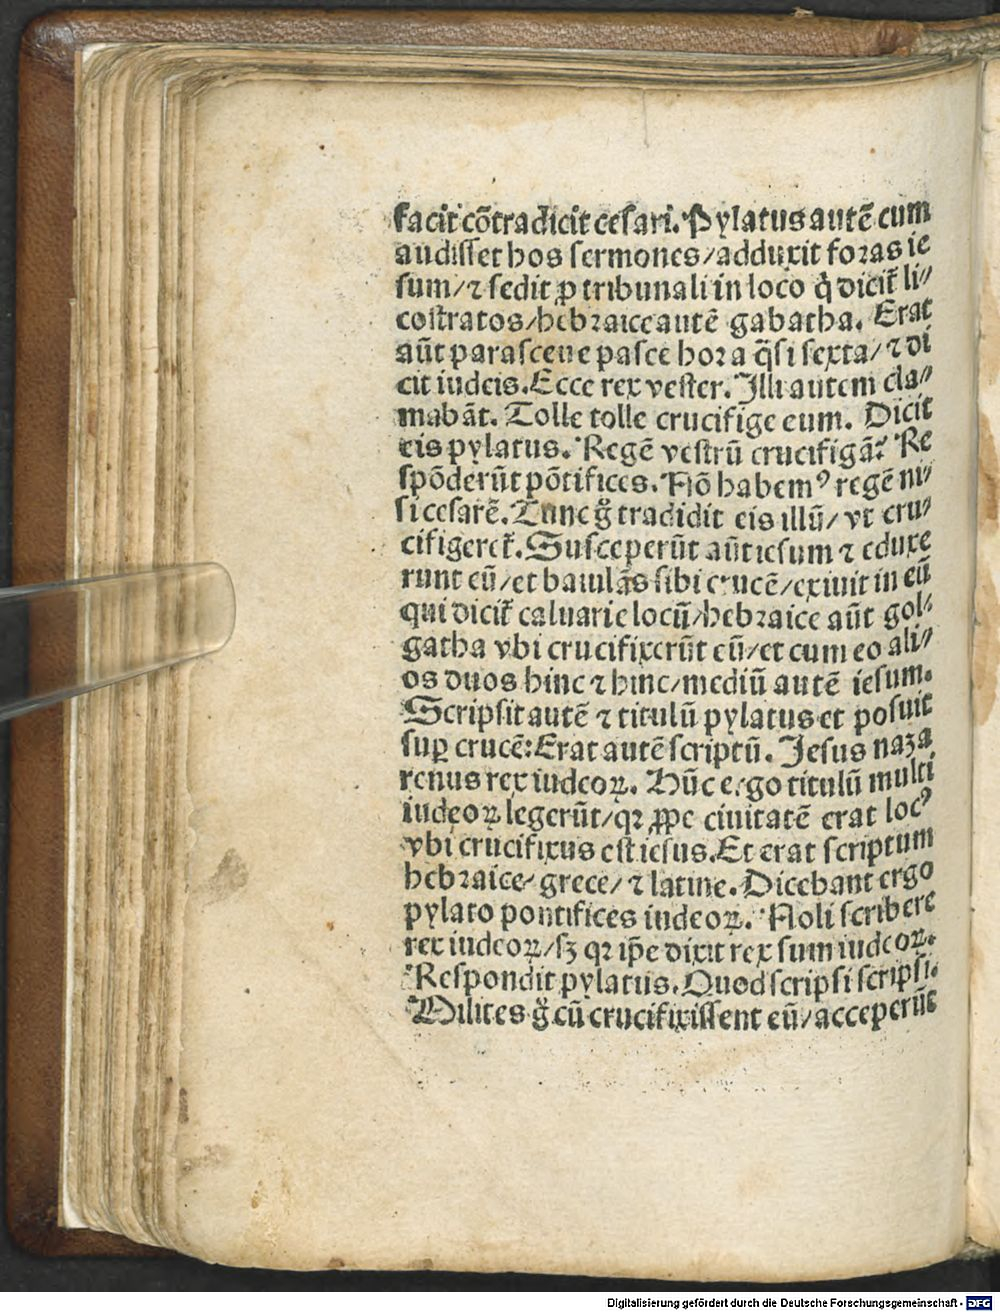 facit cõtradicit cesari. Pylatus autẽ cum
audisset hos sermones/adduxit foras ie
sum/⁊ sedit ꝓ tribunali in loco q̃ dicit̃ li⸗
costratos/hebraice autẽ gabatha. Erat
aũt parasceue pasce hora q̃si sexta/⁊ di
cit iudeis. Ecce rex vester. Illi autem cla⸗
mabãt. Tolle tolle crucifige eum. Dicit
eis pylatus. Regẽ vestrũ crucifigã? Re
spõderũt põtifices. Nõ habemꝰ regẽ ni⸗
si cesarẽ. Tunc g̃ tradidit eis illũ/ vt cru⸗
cifigeret̃. Susceperũt aũt iesum ⁊ eduxe
runt eũ/et baiulãs sibi crucẽ/exiuit in eũ
qui dicit̃ caluarie locũ/hebraice aũt gol⸗
gatha vbi crucifixerũt eũ/et cum eo ali⸗
os duos hinc ⁊ hinc/mediũ autẽ iesum.
Scripsit autẽ ⁊ titulũ pylatus et posuit
suꝑ crucẽ: Erat autẽ scriptũ. Jesus naza
renus rex iudeoꝝ. Hũc ergo titulũ multi
iudeoꝝ legerũt/qꝛ ꝓpe ciuitatẽ erat locꝰ
vbi crucifixus est iesus. Et erat scriptum
hebraice/ grece/ ⁊ latine. Dicebant ergo
pylato pontifices iudeoꝝ. Noli scribere
rex iudeoꝝ/sꝫ qꝛ ip̃e dixit rex sum iudeoꝝ.
Respondit pylatus. Quod scripsi scripsi.
Milites g̃ cũ crucifixissent eũ/acceperũt
Digitalisierung gefördert durch die Deutsche Forschungsgemeinschaft - DFG